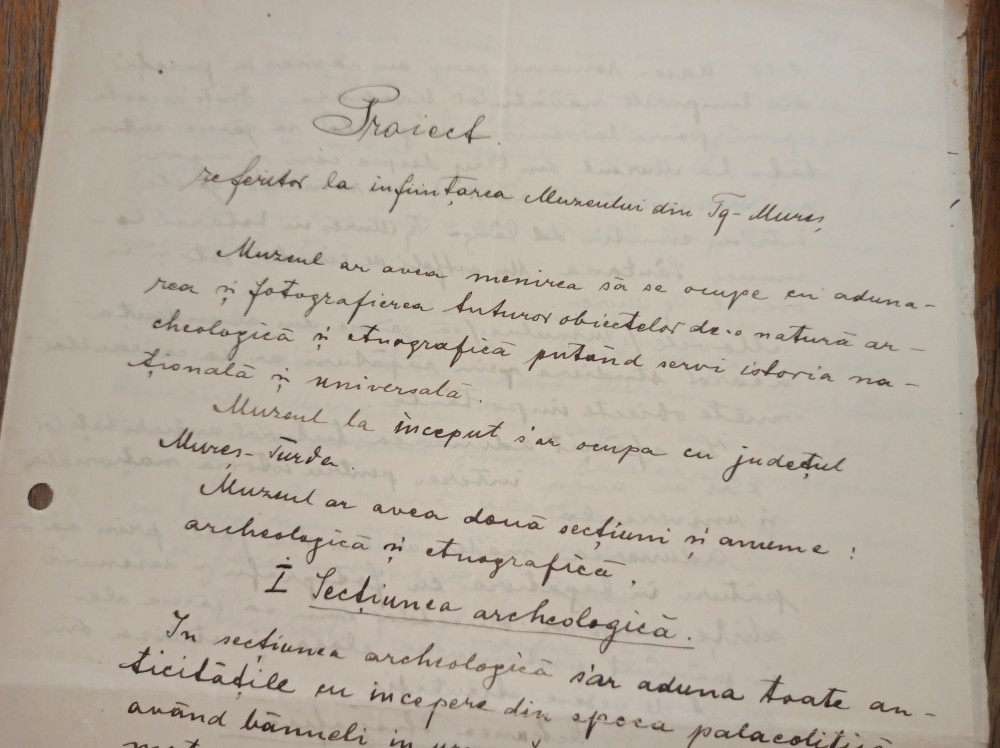 Proiect
referitor la înființarea Muzeului din Tg-Mureș
Muzeul ar avea menirea să se ocupe cu aduna-
rea și fotografierea tuturor obiectelor de o natură ar-
cheologică și etnografică putând servi istoria na-
țională și universală.
Muzeul la început s'ar ocupa cu județul
Mureș-Turda.
Muzeul ar avea două secțiuni și anume:
archeologică și etnografică.
I Secțiunea archeologică.
In secțiunea archeologică s'ar aduna toate an-
ticitățile cu incepere din epoca palaeolitică
având